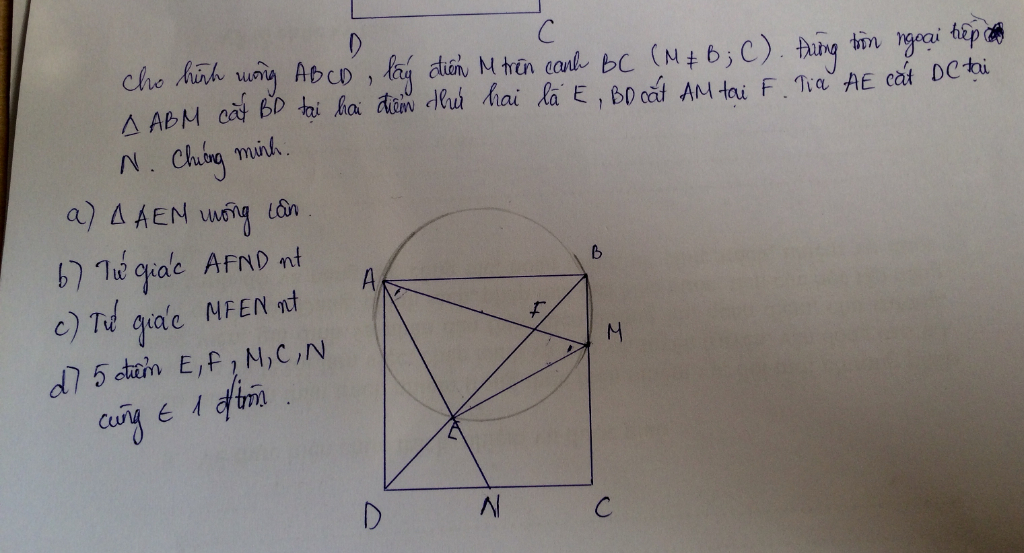 D
C
cho hình vuông ABCD, lấy điểm M trên cạnh BC (M ≠ B; C). Đường tròn ngoại tiếp
Δ ABM cắt BD tại hai điểm thứ hai là E, BD cắt AM tại F. Tia AE cắt DC tại
N. Chứng minh.
a) Δ AEM vuông cân.
b) Tứ giác AFND nt
c) Tứ giác MFEN nt
d) 5 điểm E, F, M, C, N
cùng ∈ 1 đ/tròn.
A
B
F
M
E
D
N
C